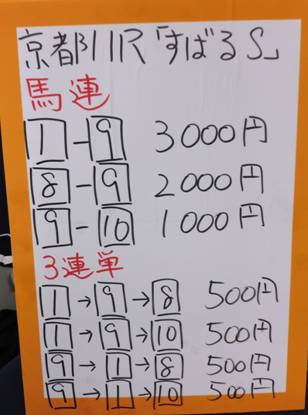 京都11R「すばるS」
馬連
1-9 3000円
8-9 2000円
9-10 1000円
3連単
1→9→8 500円
1→9→10 500円
9→1→8 500円
9→1→10 500円